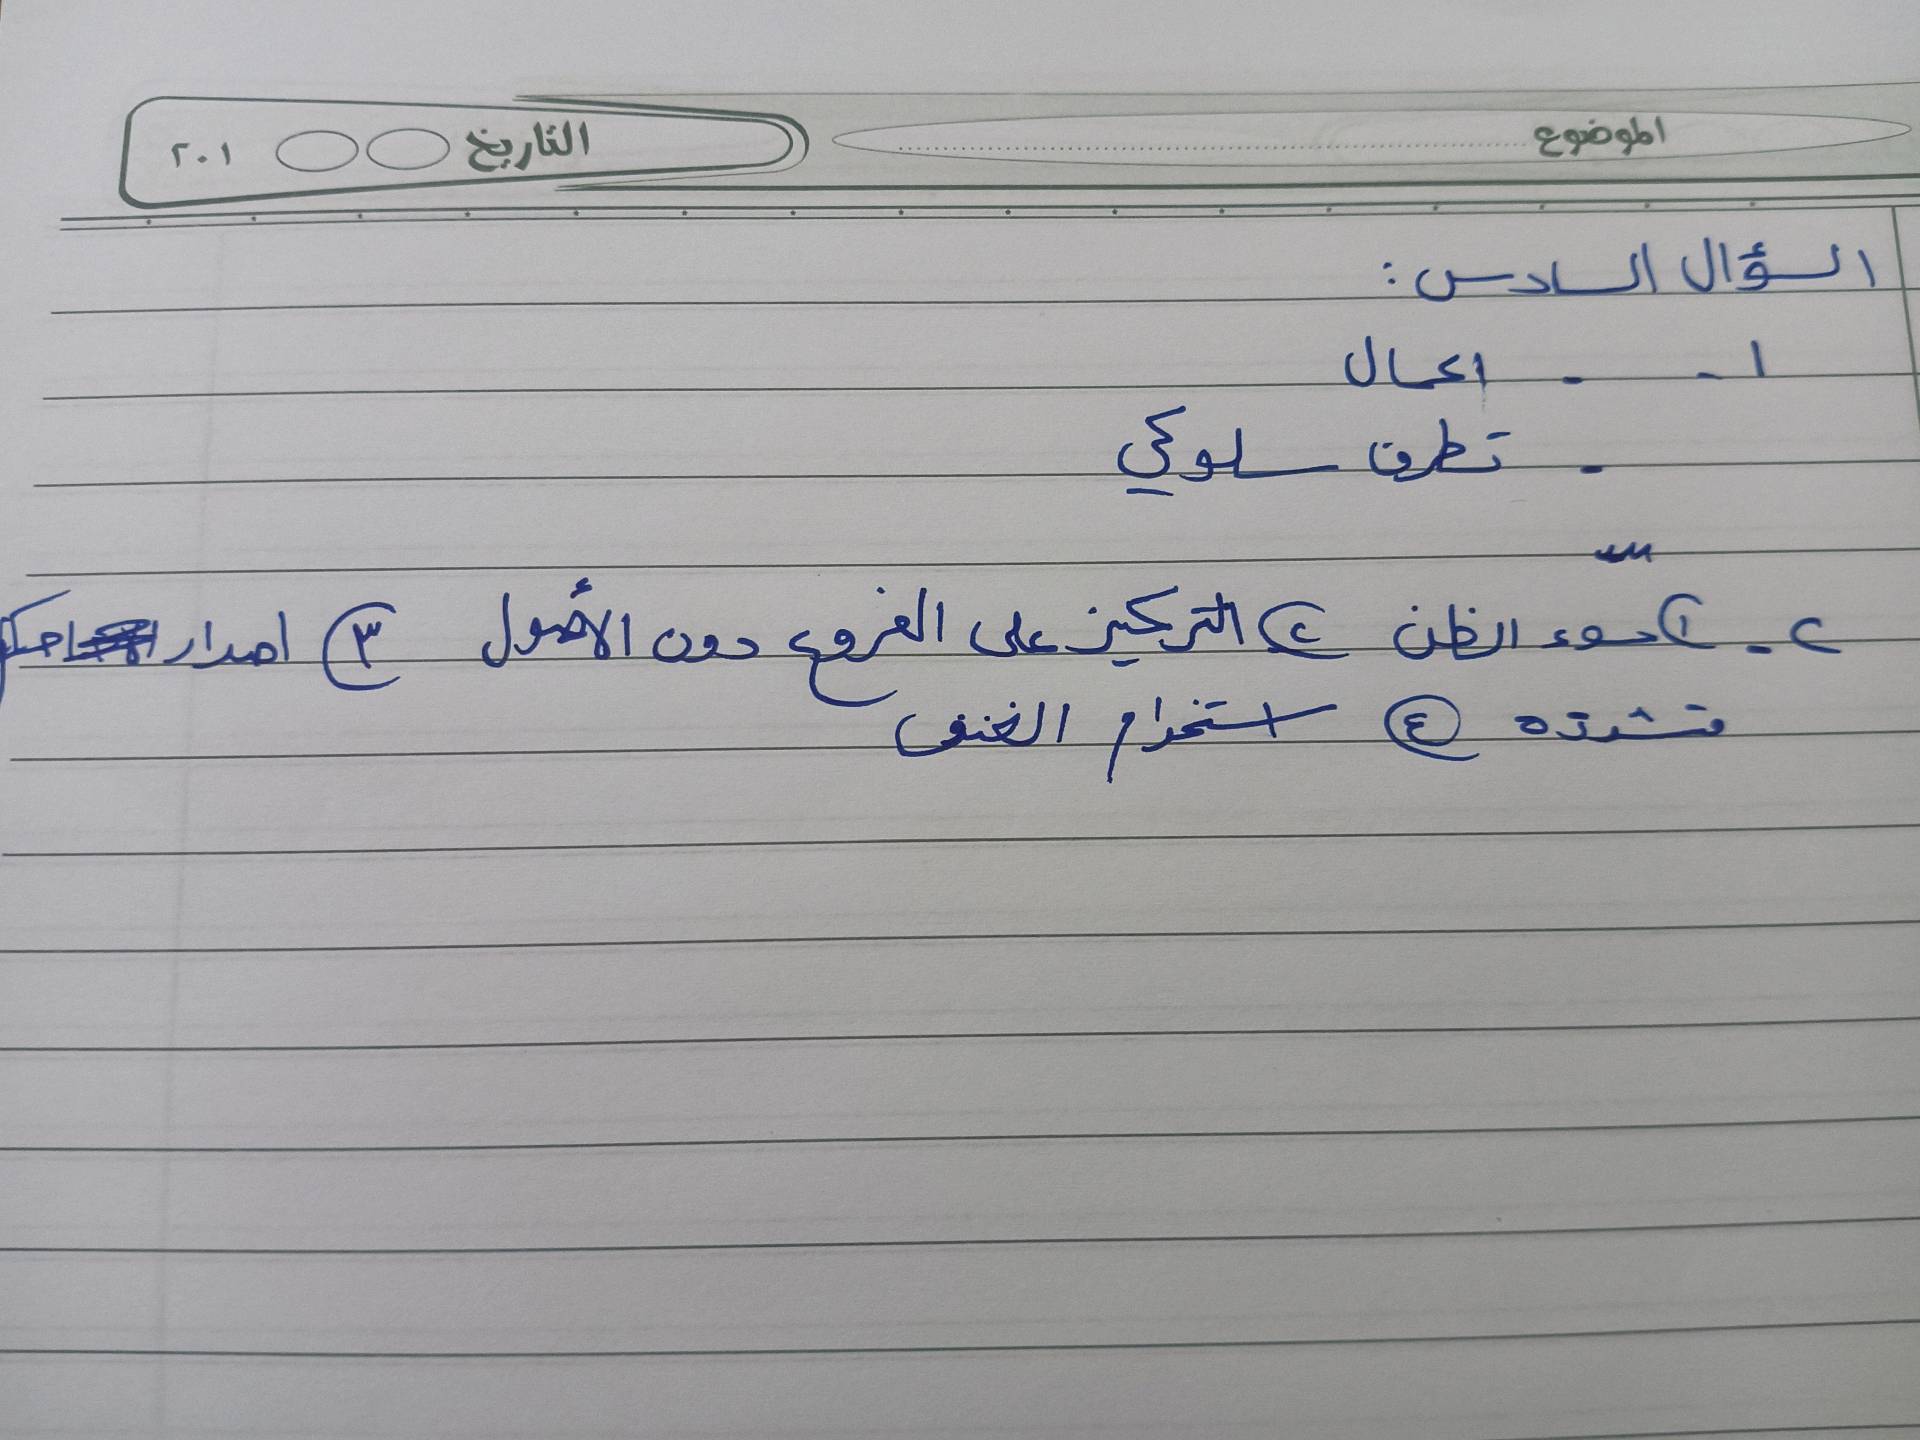 الموضوع
التاريخ ٢٠١
السؤال السادس :
١ - - اعمال
- تطرف سلوكي
٢ - ١ سوء الظن ٢ التركيز على الفروع دون الأصول ٣ اصدار احكام
متشدده ٤ استخدام العنف